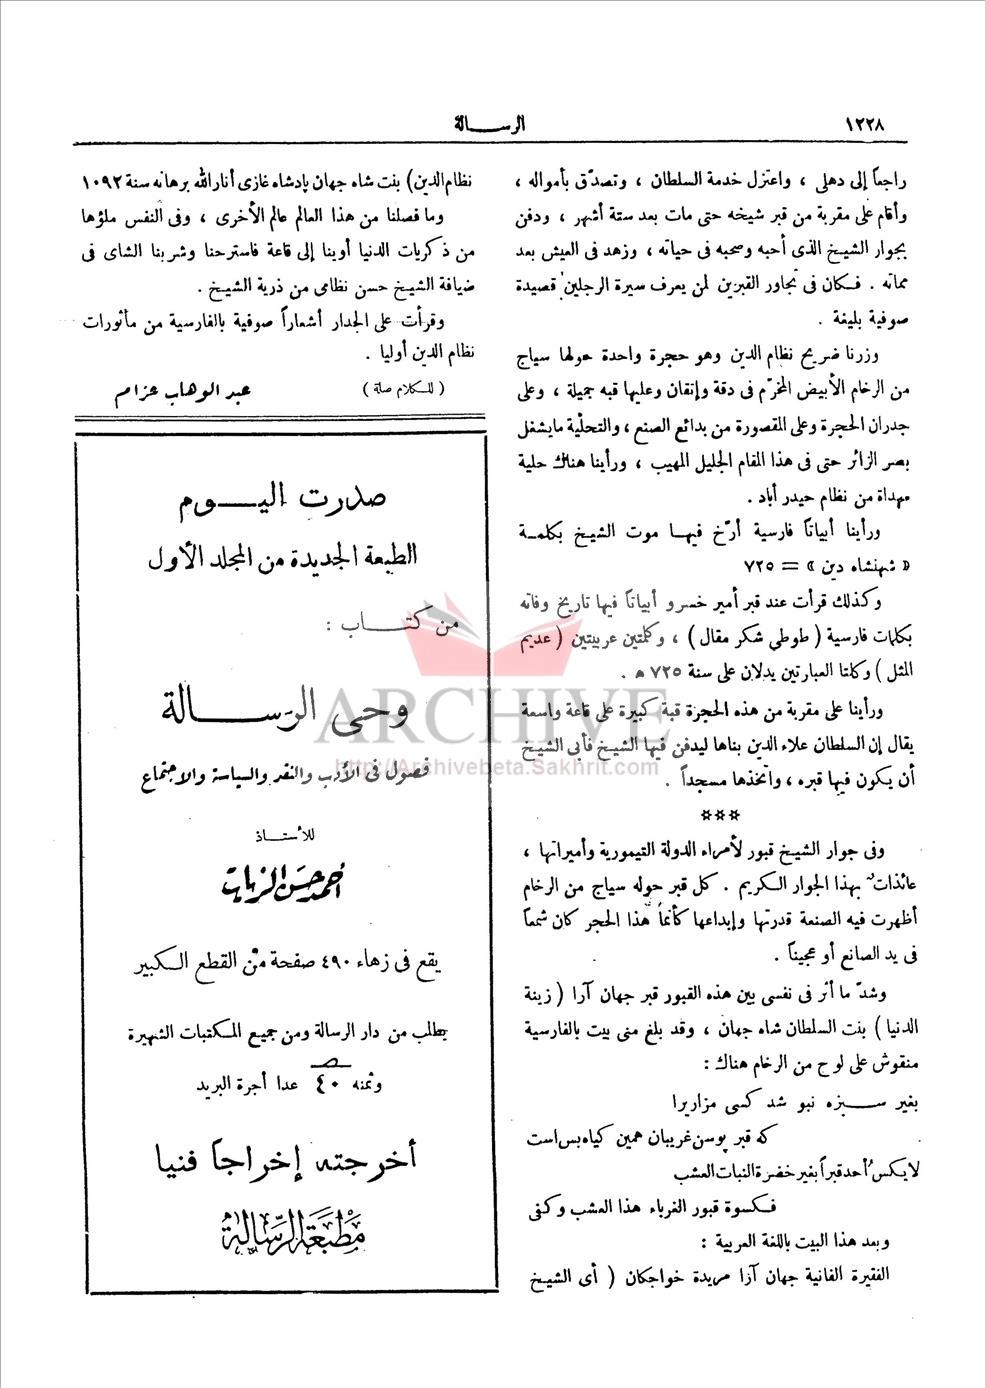 ١٢٢٨
الرسالة
راجعاً إلى دهلى ، واعتزل خدمة السلطان ، وتصدّق بأمواله ،
وأقام على مقربة من قبر شيخه حتى مات بعد ستة أشهر ، ودفن
بجوار الشيخ الذى أحبه وصحبه فى حياته ، وزهد فى العيش بعد
مماته . فكان فى تجاور القبرين لمن يعرف سيرة الرجلين قصيدة
صوفية بليغة .
وزرنا ضريح نظام الدين وهو حجرة واحدة حولها سياج
من الرخام الأبيض المخرّم فى دقة وإتقان وعليها قبه جميلة ، وعلى
جدران الحجرة وعلى المقصورة من بدائع الصنع ، والتحلية مايشغل
بصر الزائر حتى فى هذا المقام الجليل المهيب ، ورأينا هناك حلية
مهداة من نظام حيدر أباد .
ورأينا أبياتاً فارسية أرّخ فيها موت الشيخ بكلمة
« شهنشاه دين » = ٧٢٥
وكذلك قرأت عند قبر أمير خسرو أبياتاً فيها تاريخ وفاته
بكلمات فارسية ( طوطي شكر مقال ) ، وكلمتين عربيتين ( عديم
المثل ) وكلتا العبارتين يدلان على سنة ٧٢٥ ه .
ورأينا على مقربة من هذه الحجرة قبة كبيرة على قاعة واسعة
يقال إن السلطان علاء الدين بناها ليدفن فيها الشيخ فأبى الشيخ
أن يكون فيها قبره ، واتخذها مسجداً .
***
وفى جوار الشيخ قبور لأمراء الدولة التيمورية وأميراتها ،
عائذات بهذا الجوار الكريم . كل قبر حوله سياج من الرخام
أظهرت فيه الصنعة قدرتها وإبداعها كأنما هذا الحجر كان شمعاً
فى يد الصانع أو عجيناً .
وشدّ ما أثر فى نفسى بين هذه القبور قبر جهان آرا ( زينة
الدنيا ) بنت السلطان شاه جهان ، وقد بلغ منى بيت بالفارسية
منقوش على لوح من الرخام هناك :
بغير سبزه نبو شد كسى مزاريرا
كه قبر پوسن غريبان همين كياه بس است
لا يكسُ أحد قبراً بغير خضرة النبات العشب
فكسوة قبور الغرباء هذا العشب وكفى
وبعد هذا البيت باللغة العربية :
الفقيرة الفانية جهان آرا مريدة خواجكان ( أى الشيخ
نظام الدين ) بنت شاه جهان پادشاه غازى أنار الله برهانه سنة ١٠٩٢
وما فصلنا من هذا العالم عالم الأخرى ، وفى النفس ملؤها
من ذكريات الدنيا أوينا إلى قاعة فاسترحنا وشربنا الشاى فى
ضيافة الشيخ حسن نظامى من ذرية الشيخ .
وقرأت على الجدار أشعاراً صوفية بالفارسية من مأثورات
نظام الدين أوليا .
( للكلام صلة ) عبد الوهاب عزام
صدرت اليوم
الطبعة الجديدة من المجلد الأول
من كتاب :
وحى الرسالة
فصول فى الأدب والنقد والسياسة والاجتماع
للأستاذ
أحمد حسن الزيات
يقع فى زهاء ٤٩٠ صفحة من القطع الكبير
يطلب من دار الرسالة ومن جميع المكتبات الشهيرة
وثمنه ٤٠ عدا أجرة البريد
أخرجته إخراجاً فنيا
مطبعة الرسالة
ARCHIVE
http://Archivebeta.Sakhrit.com